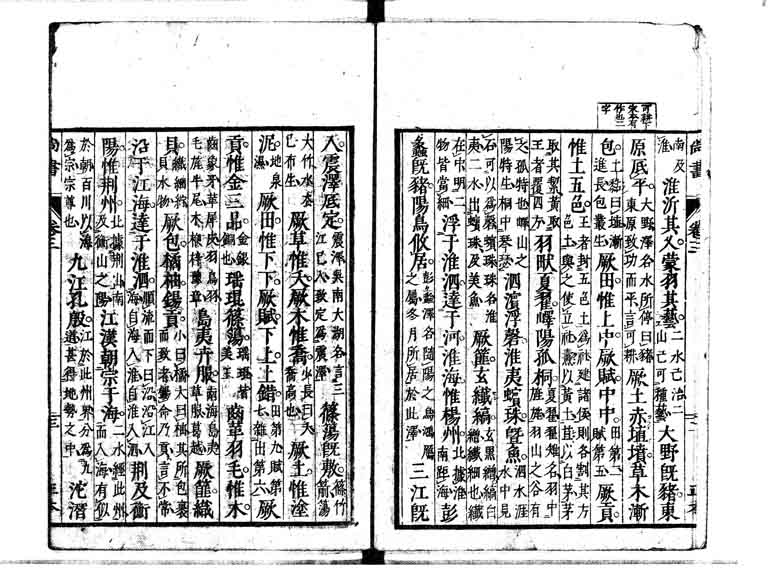 南及淮淮沂其乂蒙羽其藝二水已治二山已可種藝大野既豬東
原底平大野澤名水所停曰豬東原致功而平言可耕厥土赤埴墳草木漸
包土黏曰埴漸進長包叢生厥田惟上中厥賦中中田第二賦第五厥貢
惟土五色王者封五色土為社建諸侯則各割其方色土與之使立社燾以黃土苴以白茅茅
取其絜黃取王者覆四方羽畎夏翟嶧陽孤桐夏翟翟雉名羽中旌旄羽山之谷有
之孤特也嶧山之陽特生桐中琴瑟泗濱浮磬淮夷蠙珠曁魚泗水涯水中見
石可以為磬蠙珠珠名淮夷二水出蠙珠及美魚厥篚玄纖縞玄黑繒縞白繒纖細也纖
在中明二物皆當細浮于淮泗達于河淮海惟楊州北據淮南距海彭
蠡既豬陽鳥攸居彭蠡澤名隨陽之鳥鴻鴈之屬冬月所居於此澤三江既
尚書
卷三
入震澤底定震澤吳南大湖名言三江已入致定為震澤篠簜既敷篠竹箭簜
大竹水去已布生厥草惟夭厥木惟喬少長曰夭喬高也厥土惟塗
泥地泉濕厥田惟下下厥賦下上上錯田第九賦第七雜出第六厥
貢惟金三品金銀銅也瑤琨篠簜瑤琨皆美玉齒革羽毛惟木
齒象牙革犀皮羽鳥羽毛旄牛尾木楩梓豫章島夷卉服南海島夷草服葛越厥篚織
貝織細紵貝水物厥包橘柚錫貢小曰橘大曰柚其所包裹而致者錫命乃貢言不常
沿于江海達于淮泗順流而下曰沿沿江入海自海入淮自淮入泗荊及衡
陽惟荊州北據荊山南及衡山之陽江漢朝宗于海二水經此州而入海有似
於朝百川以海為宗宗尊也九江孔殷江於此州界分為九道甚得地勢之中沱潛
尚書
卷三
三